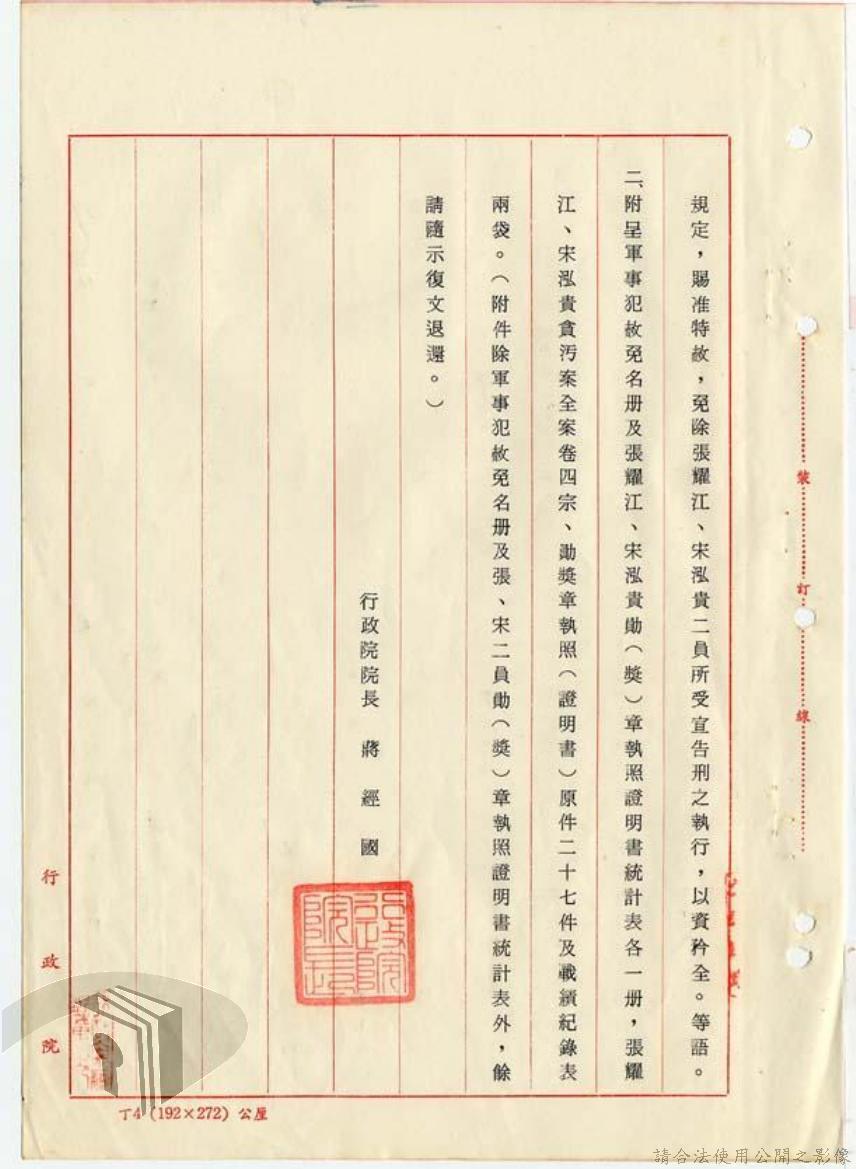 規定，賜准特赦，免除張耀江、宋泓貴二員所受宣告刑之執行，以資矜全。等語。
二、附呈軍事犯赦免名册及張耀江、宋泓貴勛（獎）章執照證明書統計表各一册，張耀
江、宋泓貴貪污案全案卷四宗、勛獎章執照（證明書）原件二十七件及戰績紀錄表
兩袋。（附件除軍事犯赦免名册及張、宋二員勛（獎）章執照證明書統計表外，餘
請隨示復文退還。）
行政院院長 蔣經國
行政院院長
裝訂線
行政院
丁4（192×272）公厘
請合法使用公開之影像